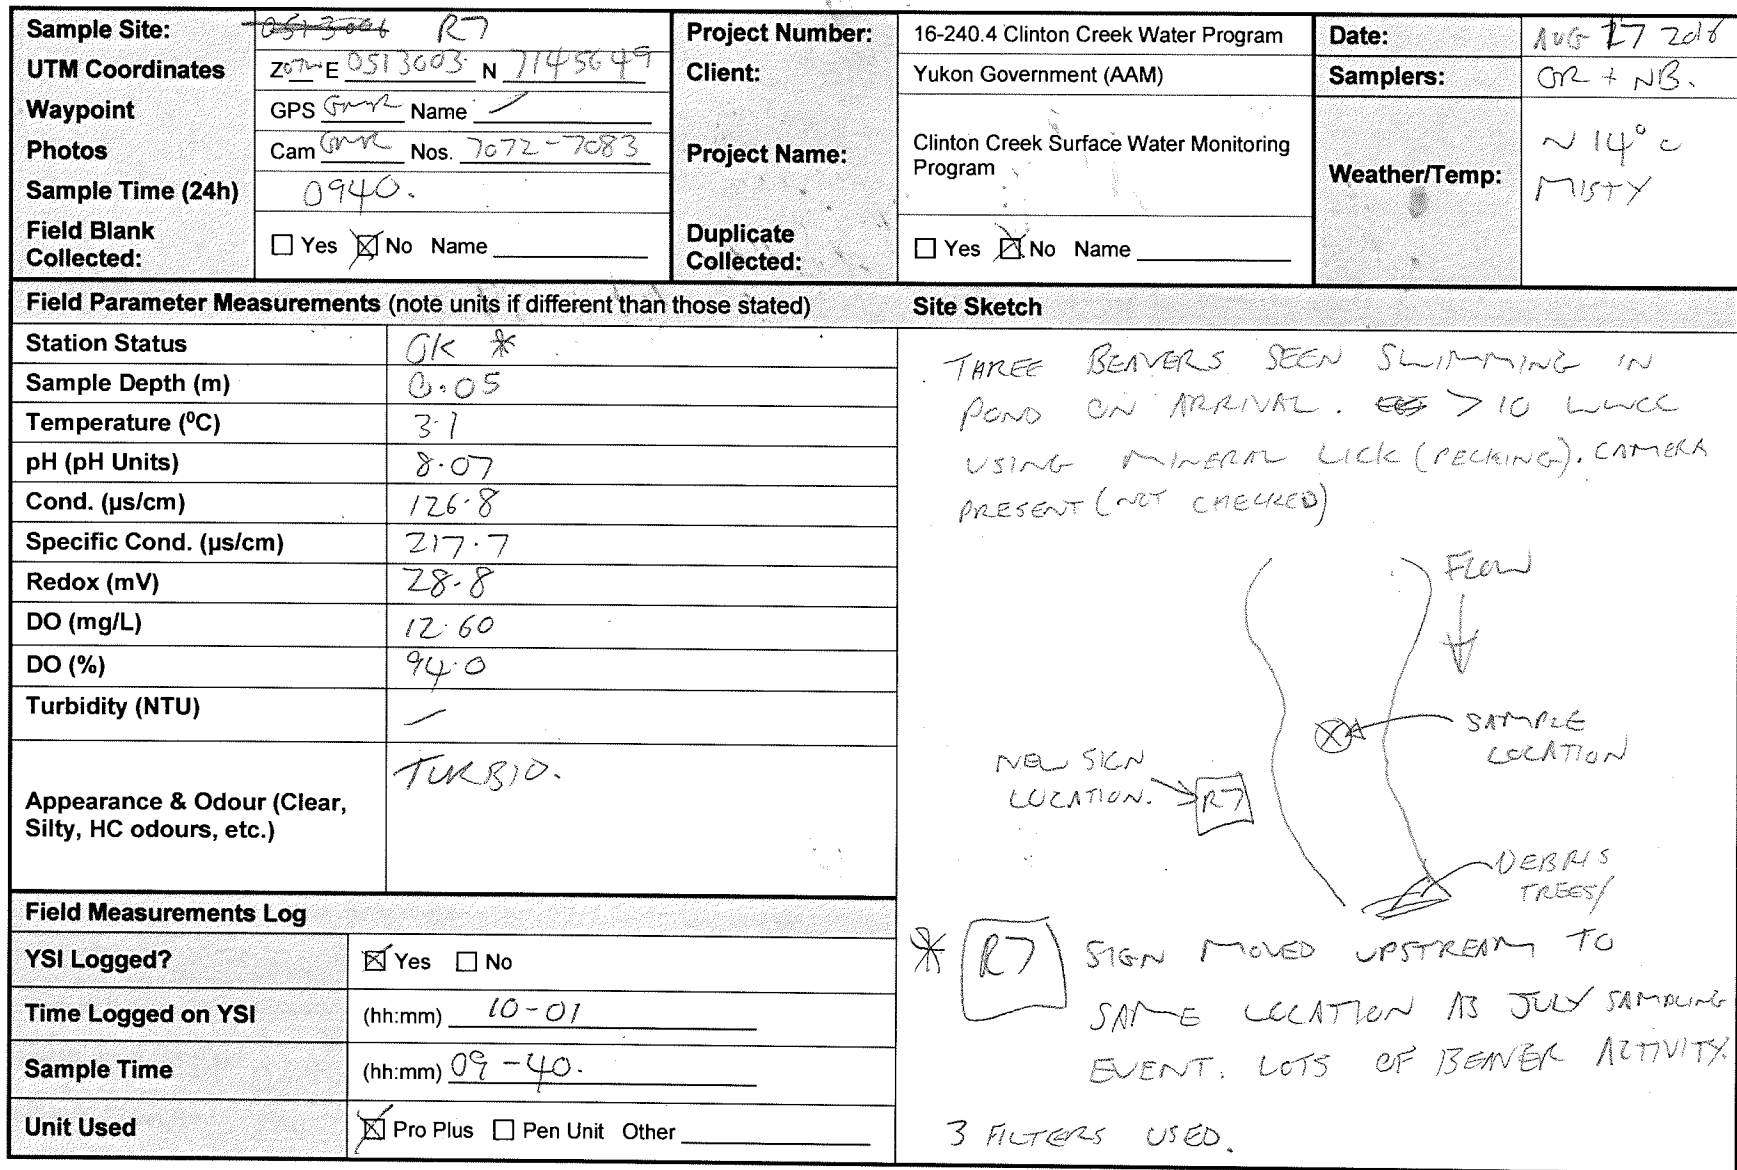 Sample Site: 0513006 R7
UTM Coordinates Z 07W E 0513003 N 7145649
Waypoint GPS GMR Name —
Photos Cam GMR Nos. 7072-7083
Sample Time (24h) 0940.
Field Blank Collected: ☐ Yes ☒ No Name
Project Number: 16-240.4 Clinton Creek Water Program
Client: Yukon Government (AAM)
Project Name: Clinton Creek Surface Water Monitoring
Program
Duplicate Collected: ☐ Yes ☒ No Name
Date: AUG 27 2016
Samplers: GR + NB.
Weather/Temp: ~14°C
MISTY
Field Parameter Measurements (note units if different than those stated)
Station Status OK *
Sample Depth (m) 0.05
Temperature (⁰C) 3.1
pH (pH Units) 8.07
Cond. (µs/cm) 126.8
Specific Cond. (µs/cm) 217.7
Redox (mV) 28.8
DO (mg/L) 12.60
DO (%) 94.0
Turbidity (NTU) —
Appearance & Odour (Clear, TURBID.
Silty, HC odours, etc.)
Field Measurements Log
YSI Logged? ☒ Yes ☐ No
Time Logged on YSI (hh:mm) 10-01
Sample Time (hh:mm) 09-40.
Unit Used ☒ Pro Plus ☐ Pen Unit Other
Site Sketch
THREE BEAVERS SEEN SWIMMING IN
POND ON ARRIVAL. >10 WWCC
USING MINERAL LICK (PECKING). CAMERA
PRESENT (NOT CHECKED)
FLOW
SAMPLE
LOCATION
NEW SIGN
LOCATION.
R7
DEBRIS
TREES/
* R7 SIGN MOVED UPSTREAM TO
SAME LOCATION AS JULY SAMPLING
EVENT. LOTS OF BEAVER ACTIVITY.
3 FILTERS USED.